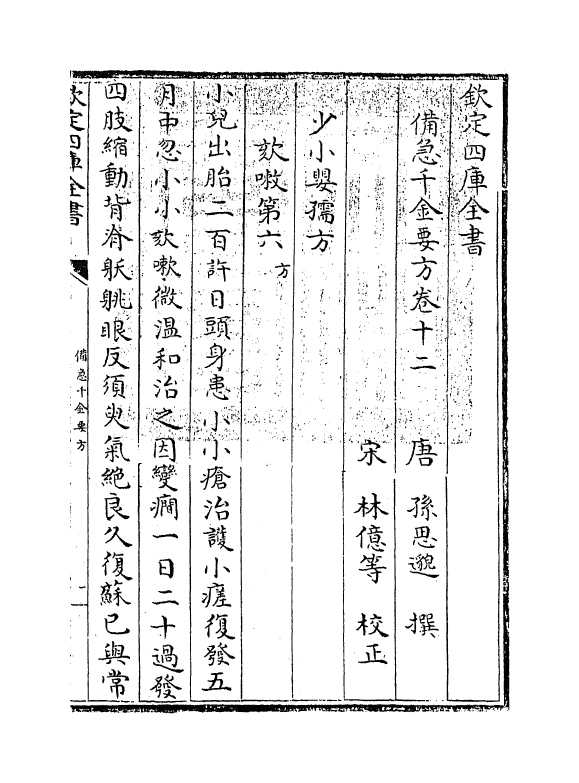 欽定四庫全書
備急千金要方卷十二
唐 孫思邈 撰
宋 林億等 校正
少小嬰孺方
欬嗽第六方
小兒出胎二百許日頭身患小小瘡治護小瘥復發五
月中忽小小欬嗽微温和治之因變癇一日二十過發
四肢縮動背脊䠷眼反須臾氣絶良久復蘇已與常
欽定四庫全書
備急千金要方
一